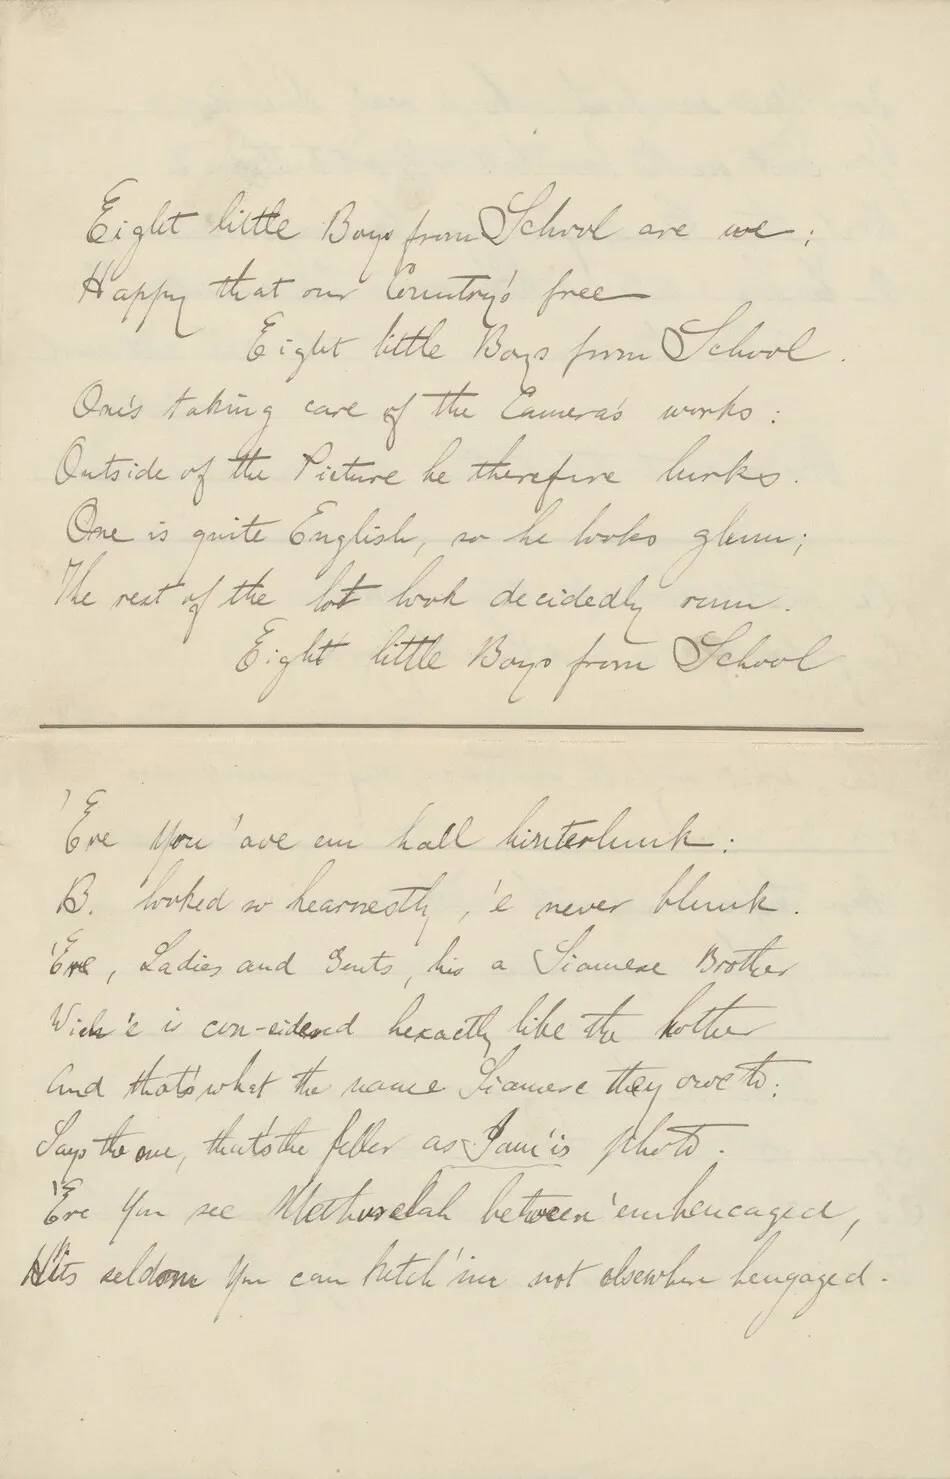 Eight little Boys from School are we;
Happy that our Country's free
Eight little Boys from School.
One's taking care of the Camera's works:
Outside of the Picture he therefore lurks.
One is quite English, so he looks glum;
The rest of the lot look decidedly rum.
Eight little Boys from School
'Ere You 'ave em hall hinterlunk:
B. looked so hearnestly, 'e never blunk.
'Ere, Ladies and Gents, his a Siamese Brother
Wich 'e is con-sidered hexactly like the hother
And that's what the name Siamese they owe to:
Says the one, that's the feller as I am 'is photo.
'Ere You see Methuselah between 'em hencaged,
Hits seldom You can ketch 'im not elsewhere hengaged.